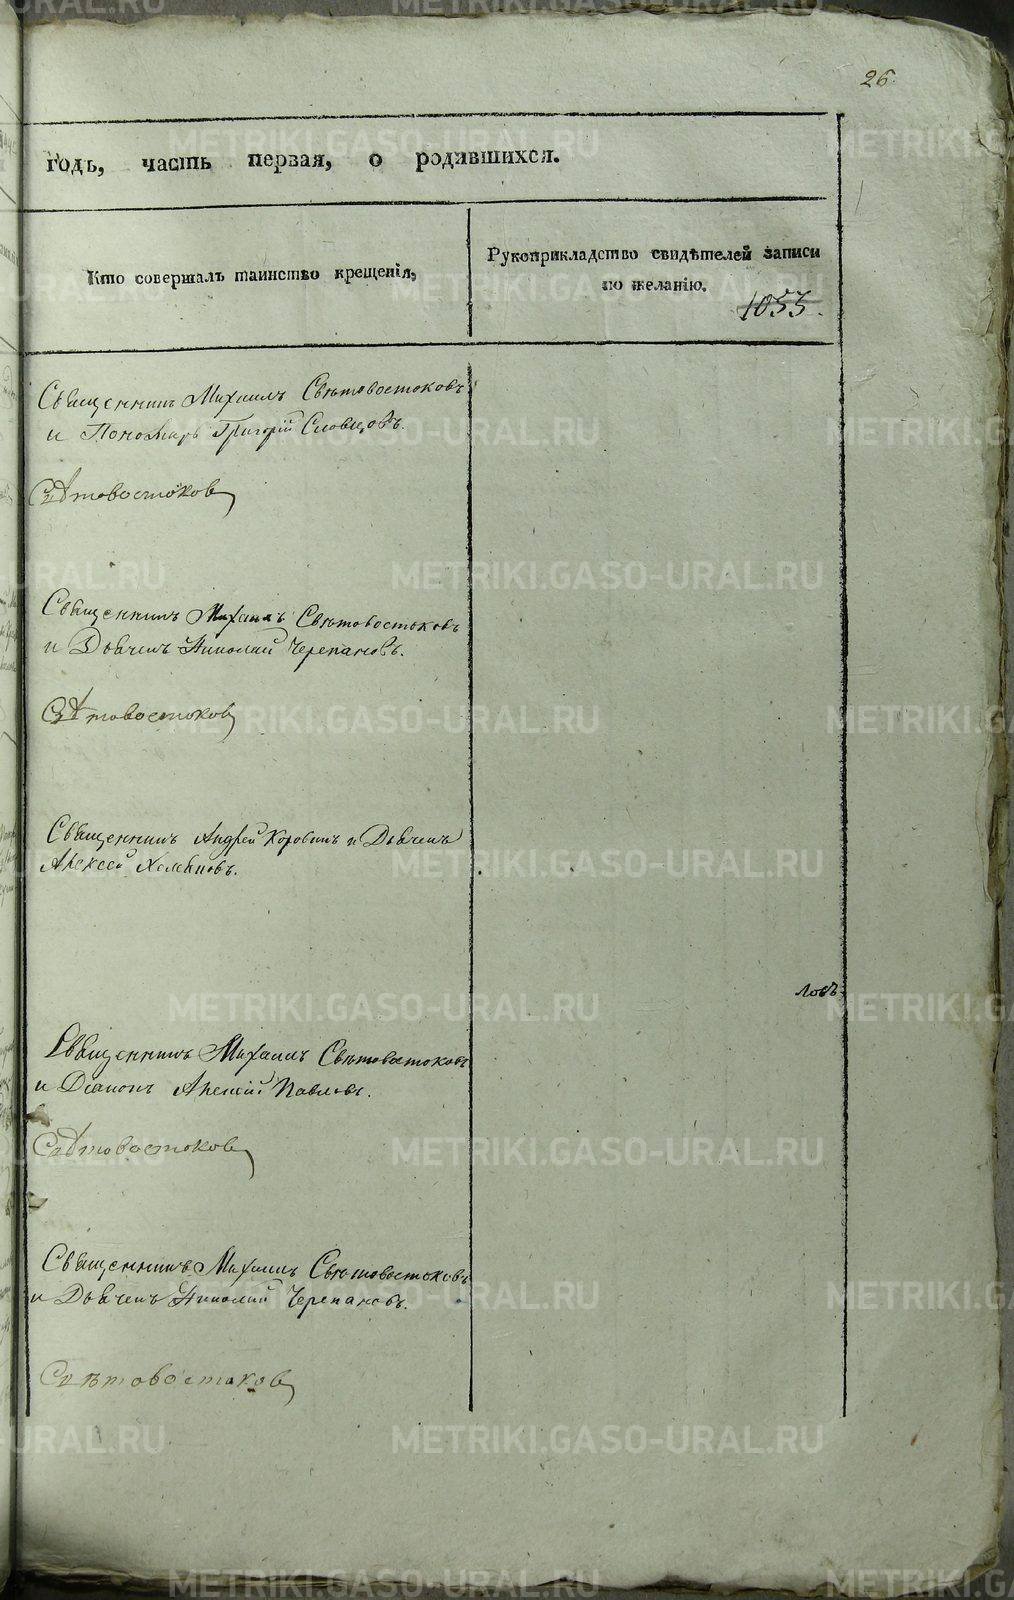 26.
годъ, часть первая, о родившихся.
Кто совершалъ таинство крещенія,
Рукоприкладство свидѣтелей записи
по желанію.
1053.
Священникъ Михаилъ Свѣтовостоковъ
и Пономарь Григорій Словцовъ.
Свѣтовостоковъ
Священникъ Михаилъ Свѣтовостоковъ
и Дьячекъ Николай Черепановъ.
Свѣтовостоковъ
Священникъ Андрей Коровинъ и Дьячекъ
Алексей
ловъ
Священникъ Михаилъ Свѣтовостоковъ
и Діаконъ Алексей Павловъ.
Свѣтовостоковъ
Священникъ Михаилъ Свѣтовостоковъ
и Дьячекъ Николай Черепановъ.
Свѣтовостоковъ
METRIKI.GASO-URAL.RU